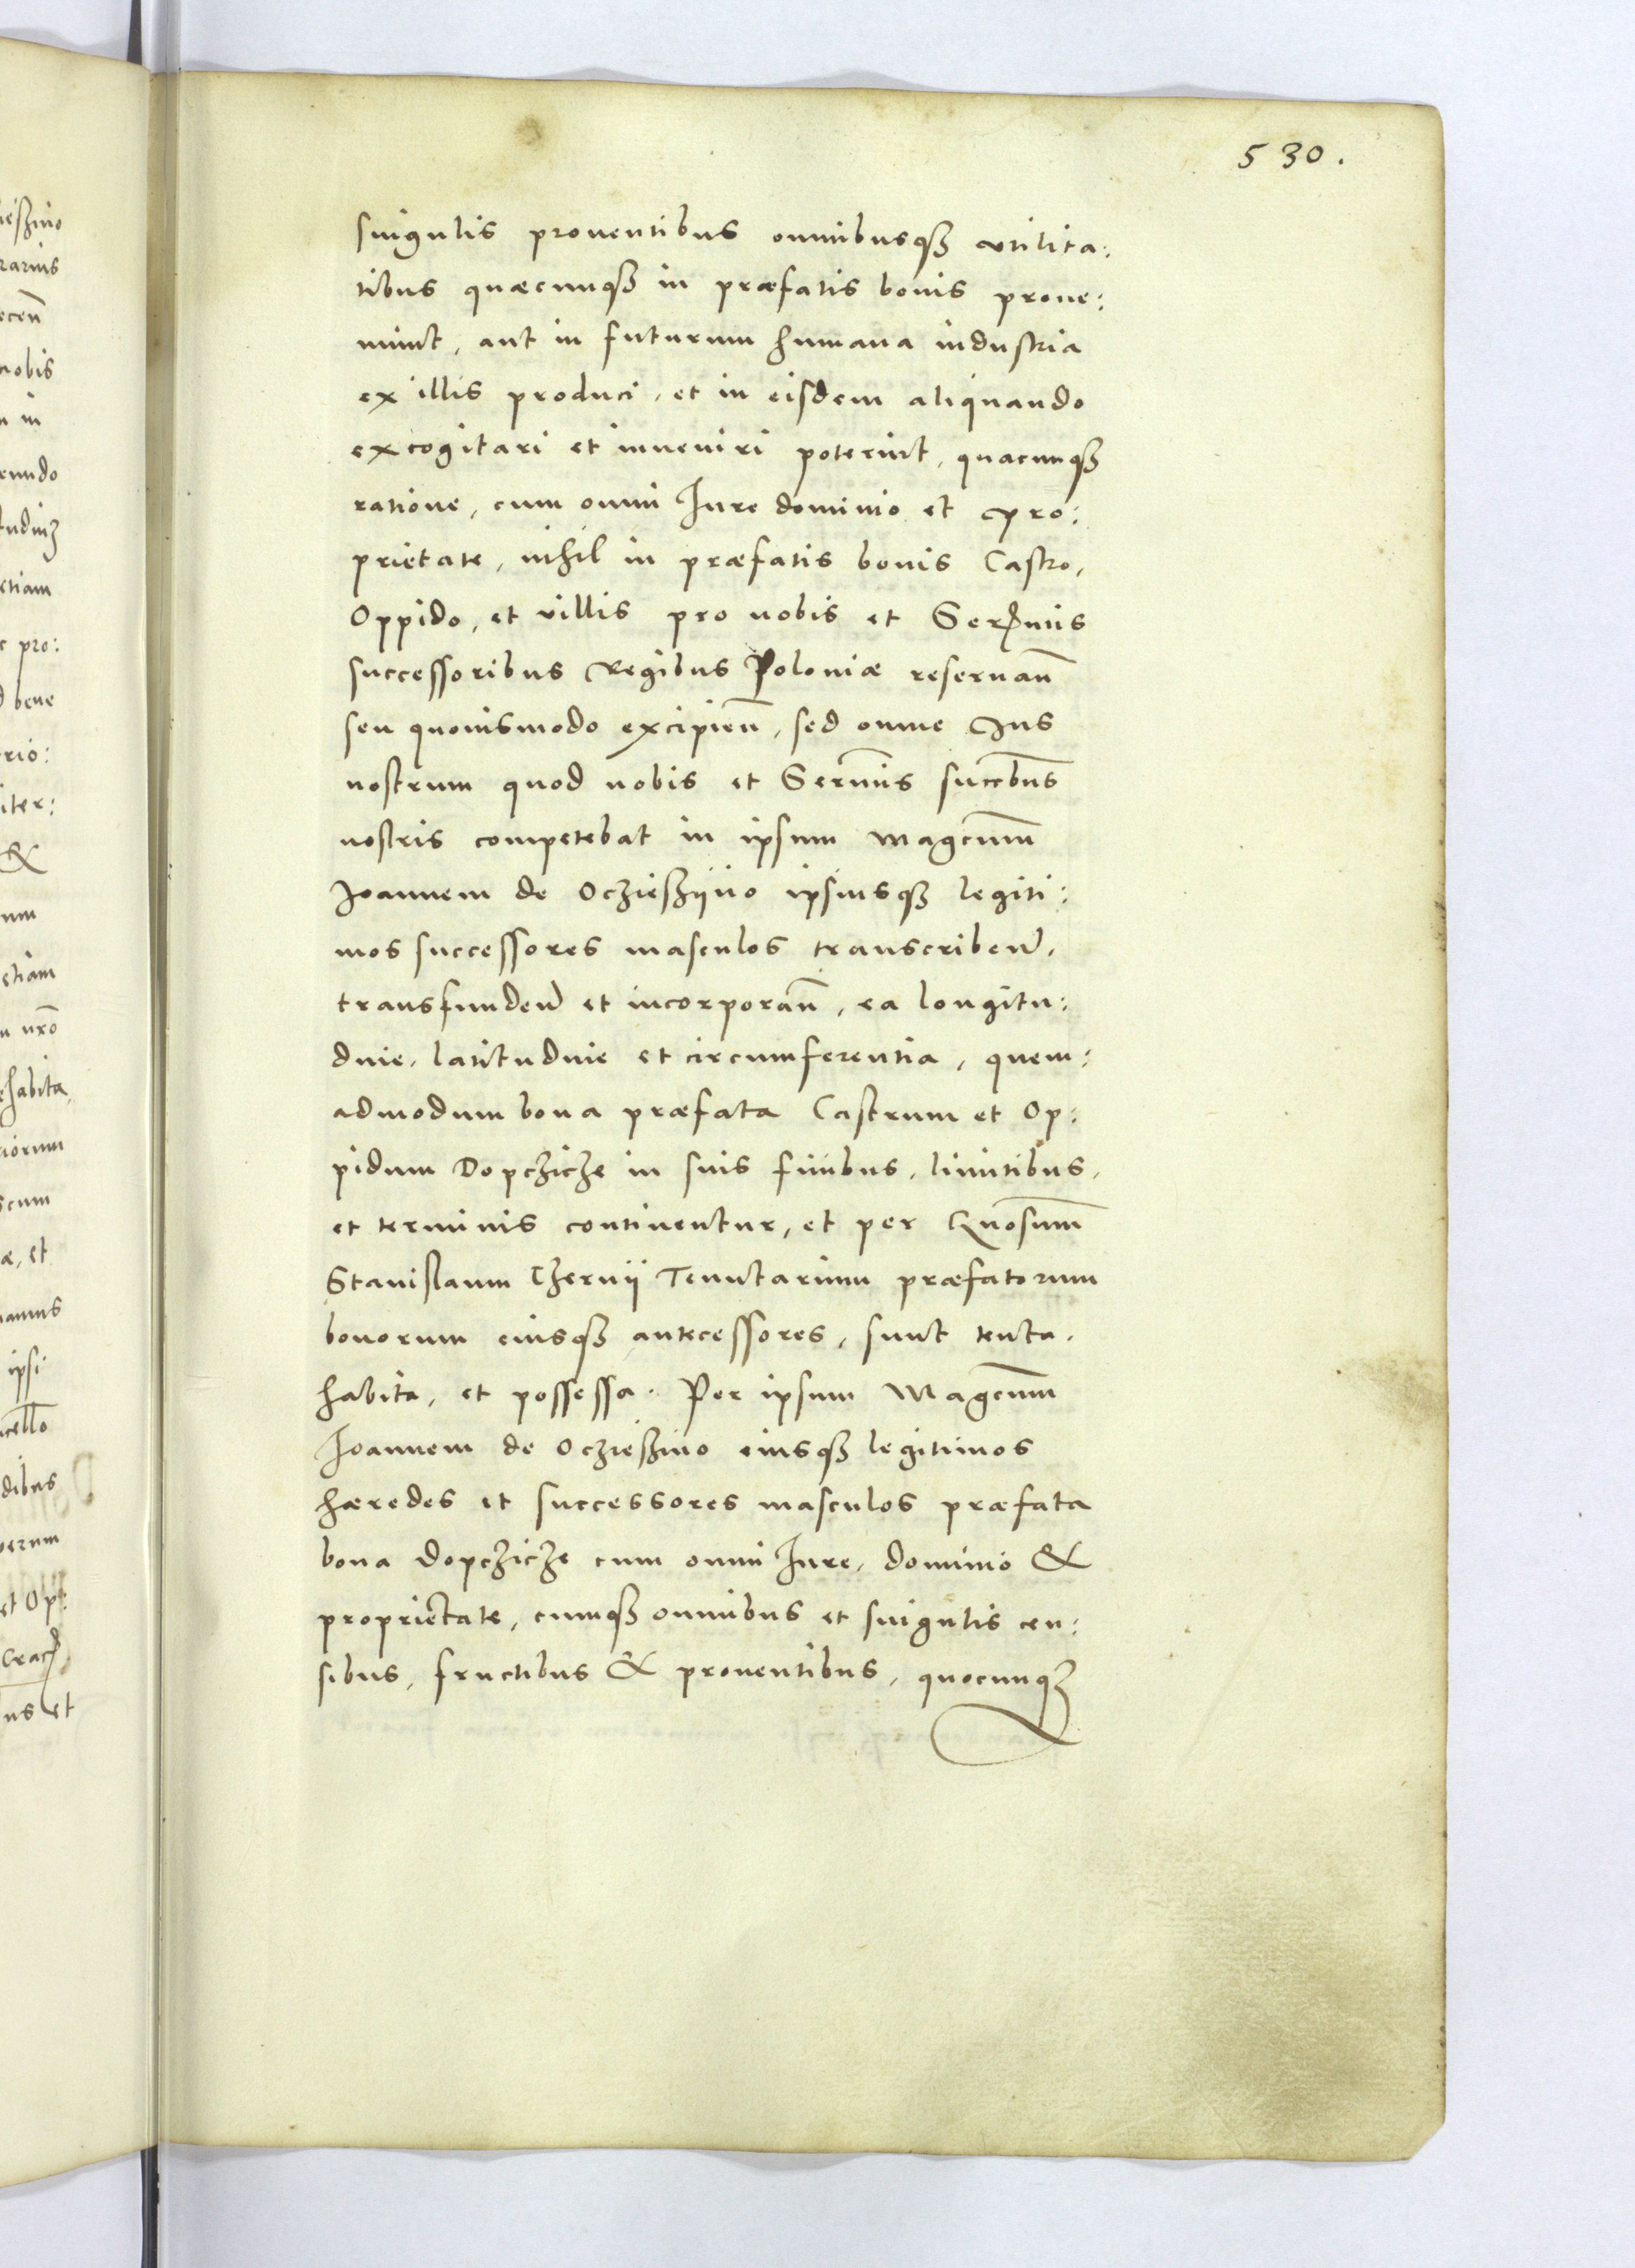 530.
singulis prouentibus omnibusqꝫ vtilita:
tibus quæcunqꝫ in præfatis bonis proue:
niunt, aut in futurum humana industria
ex illis produci, et in eisdem aliquando
excogitari et inueniri poterint, quacunqꝫ
ratione, cum omni Iure dominio et pro:
prietate, nihil in præfatis bonis Castro,
Oppido, et villis pro nobis et Serẽnis
successoribus Regibus Poloniæ reseruañ
seu quouismodo excipieñ, sed omne Ius
nostrum quod nobis et Serm̃is succbus̃
nostris competebat in ipsum Magcum̃
Joannem de Oczieszijno ipsiusqꝫ legiti:
mos successores masculos transcribeñ,
transfundeñ et incorporañ, ea longitu:
dine, latitudine et circumferentia, quem:
admodum bona præfata Castrum et Op:
pidum Dopcziche in suis finibus, limitibus,
et terminis continentur, et per Gnosum̃
Stanislaum Czernij Tenutarium præfatorum
bonorum eiusqꝫ antecessores, sunt tenta,
habita, et possessa. Per ipsum Magcum̃
Joannem de Oczieszino eiusqꝫ legitimos
hæredes et successores masculos præfata
bona Dopcziche cum omni Iure, dominio &
proprietate, cumqꝫ omnibus et singulis cen:
sibus, fructibus & prouentibus, quocunqꝫ